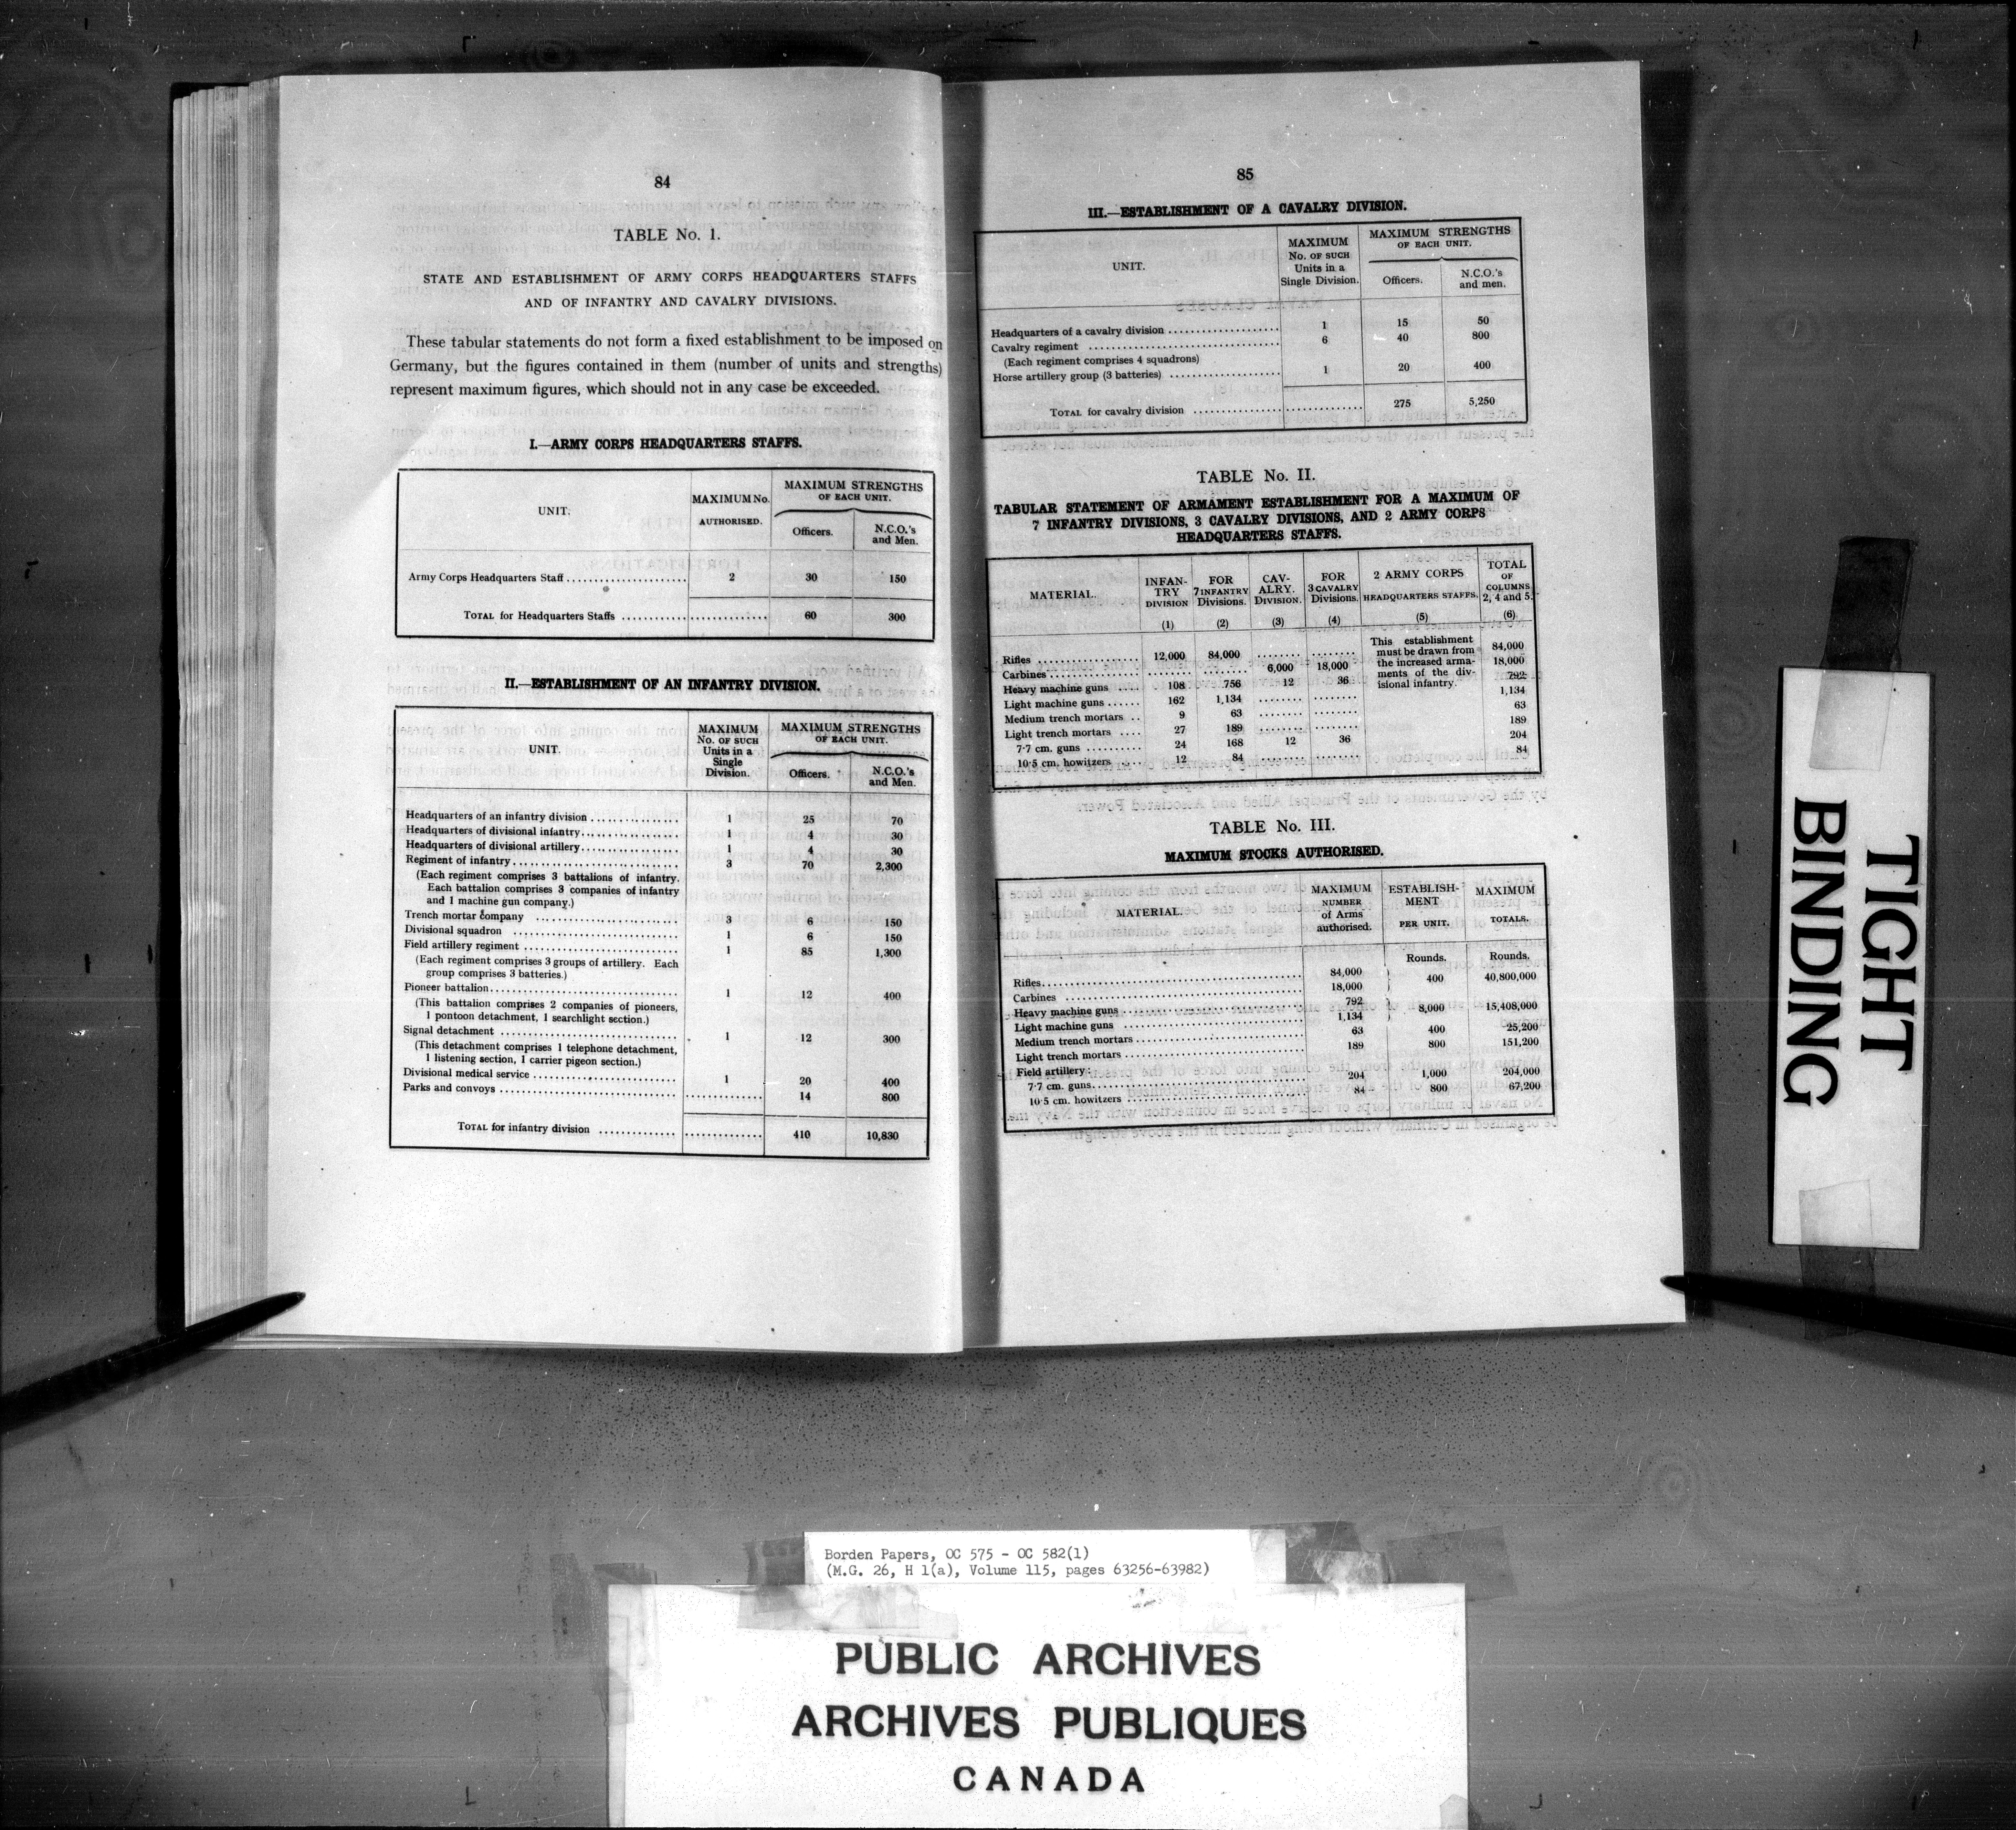 84
TABLE No. 1.
STATE AND ESTABLISHMENT OF ARMY CORPS HEADQUARTERS STAFFS
AND OF INFANTRY AND CAVALRY DIVISIONS.
These tabular statements do not form a fixed establishment to be imposed on
Germany, but the figures contained in them (number of units and strengths)
represent maximum figures, which should not in any case be exceeded.
I.—ARMY CORPS HEADQUARTERS STAFFS.
UNIT. MAXIMUM No. AUTHORISED. MAXIMUM STRENGTHS OF EACH UNIT.
Officers. N.C.O.'s and Men.
Army Corps Headquarters Staff 2 30 150
TOTAL for Headquarters Staffs 60 300
II.—ESTABLISHMENT OF AN INFANTRY DIVISION.
UNIT. MAXIMUM No. OF SUCH Units in a Single Division. MAXIMUM STRENGTHS OF EACH UNIT.
Officers. N.C.O.'s and Men.
Headquarters of an infantry division 1 25 70
Headquarters of divisional infantry 1 4 30
Headquarters of divisional artillery 1 4 30
Regiment of infantry 3 70 2,300
(Each regiment comprises 3 battalions of infantry.
Each battalion comprises 3 companies of infantry
and 1 machine gun company.)
Trench mortar company 3 6 150
Divisional squadron 1 6 150
Field artillery regiment 1 85 1,300
(Each regiment comprises 3 groups of artillery. Each
group comprises 3 batteries.)
Pioneer battalion 1 12 400
(This battalion comprises 2 companies of pioneers,
1 pontoon detachment, 1 searchlight section.)
Signal detachment 1 12 300
(This detachment comprises 1 telephone detachment,
1 listening section, 1 carrier pigeon section.)
Divisional medical service 1 20 400
Parks and convoys 14 800
TOTAL for infantry division 410 10,830
85
III.—ESTABLISHMENT OF A CAVALRY DIVISION.
UNIT. MAXIMUM No. OF SUCH Units in a Single Division. MAXIMUM STRENGTHS OF EACH UNIT.
Officers. N.C.O.'s and men.
Headquarters of a cavalry division 1 15 50
Cavalry regiment 6 40 800
(Each regiment comprises 4 squadrons)
Horse artillery group (3 batteries) 1 20 400
TOTAL for cavalry division 275 5,250
TABLE No. II.
TABULAR STATEMENT OF ARMAMENT ESTABLISHMENT FOR A MAXIMUM OF
7 INFANTRY DIVISIONS, 3 CAVALRY DIVISIONS, AND 2 ARMY CORPS
HEADQUARTERS STAFFS.
MATERIAL. INFANTRY DIVISION FOR 7 INFANTRY Divisions. CAVALRY. DIVISION. FOR 3 CAVALRY Divisions. 2 ARMY CORPS HEADQUARTERS STAFFS. TOTAL OF COLUMNS 2, 4 and 5.
(1) (2) (3) (4) (5) (6)
This establishment must be drawn from the increased armaments of the divisional infantry.
Rifles 12,000 84,000 84,000
Carbines 6,000 18,000 18,000
Heavy machine guns 108 756 12 36 792
Light machine guns 162 1,134 1,134
Medium trench mortars 9 63 63
Light trench mortars 27 189 189
7·7 cm. guns 24 168 12 36 204
10·5 cm. howitzers 12 84 84
TABLE No. III.
MAXIMUM STOCKS AUTHORISED.
MATERIAL. MAXIMUM NUMBER of Arms authorised. ESTABLISHMENT PER UNIT. MAXIMUM TOTALS.
Rounds. Rounds.
Rifles 84,000
Carbines 18,000 } 400 40,800,000
Heavy machine guns 792
Light machine guns 1,134 } 8,000 15,408,000
Medium trench mortars 63 400 25,200
Light trench mortars 189 800 151,200
Field artillery:
7·7 cm. guns 204 1,000 204,000
10·5 cm. howitzers 84 800 67,200
TIGHT
BINDING
Borden Papers, OC 575 - OC 582(1)
(M.G. 26, H 1(a), Volume 115, pages 63256-63982)
PUBLIC ARCHIVES
ARCHIVES PUBLIQUES
CANADA